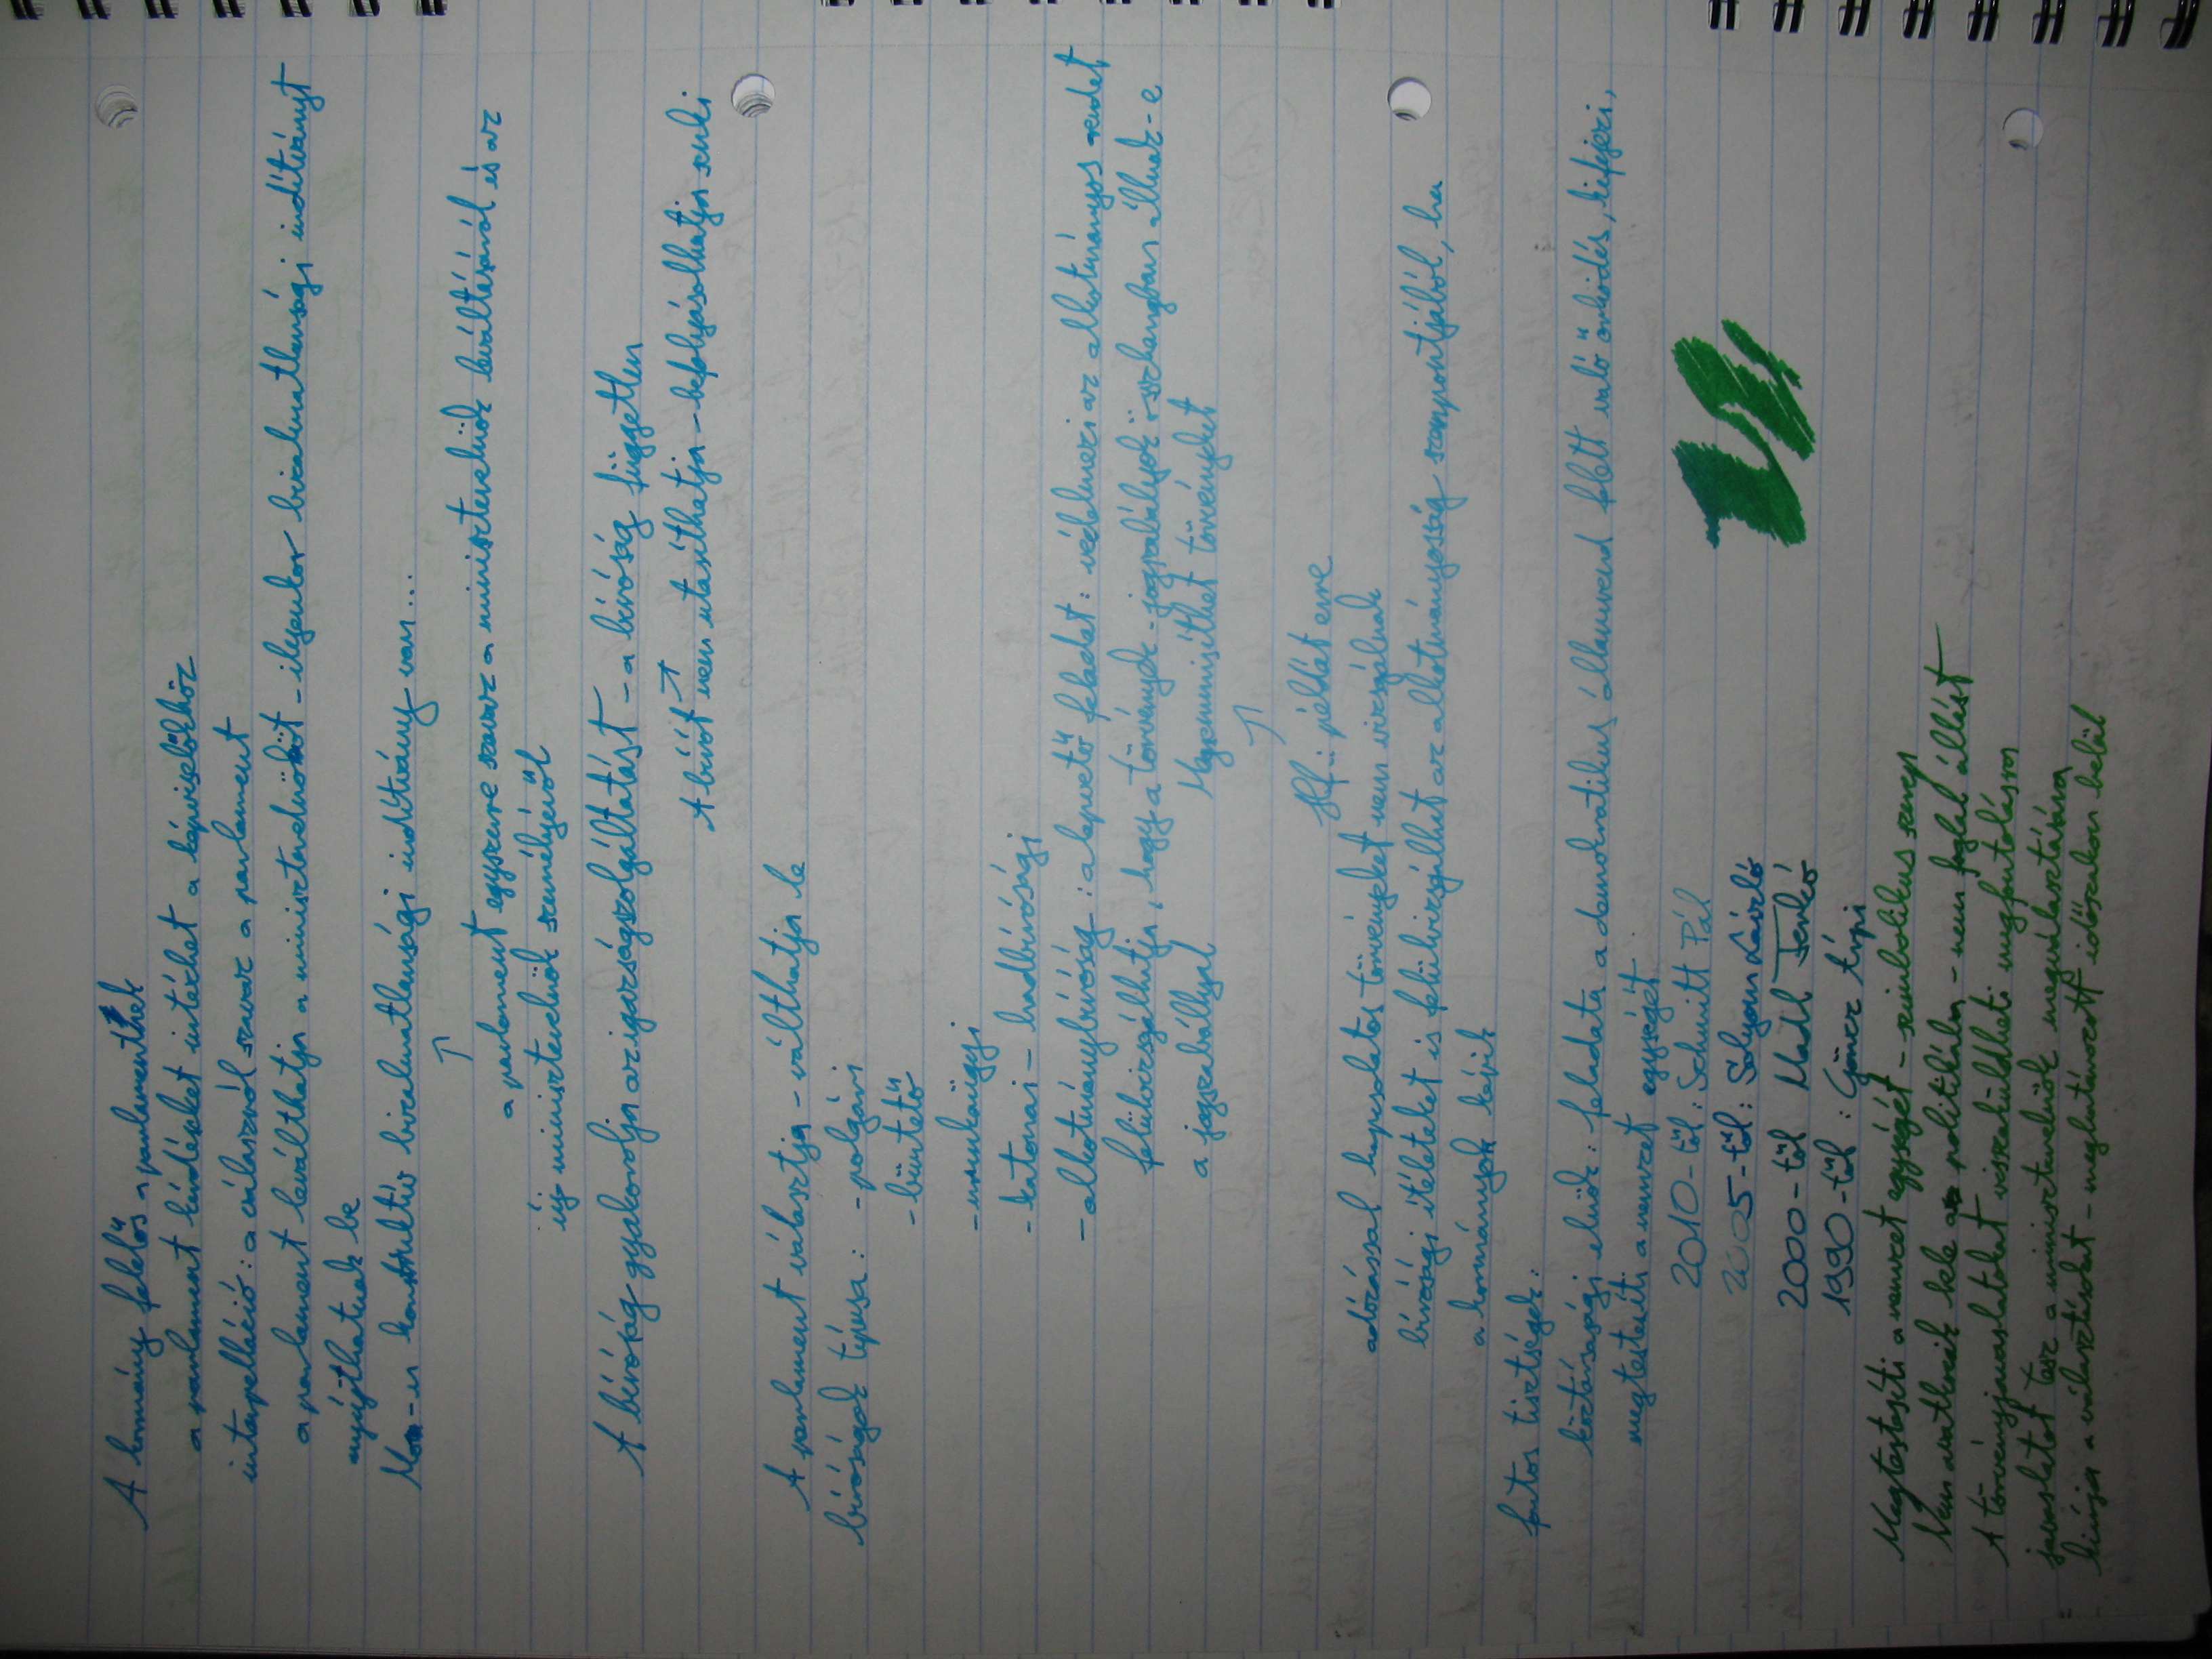 A kormány felelős a parlamentnek
a parlament kérdéseket intézhet a képviselőkhöz
interpelláció: a válaszról szavaz a parlament
a parlament leválthatja a miniszterelnököt - ilyenkor bizalmatlansági indítványt
nyújthatnak be
Mo-n konstruktív bizalmatlansági indítvány van...
↑
a parlament egyszerre szavaz a miniszterelnök leváltásáról és az
új miniszterelnök személyéről
A bíróság gyakorolja az igazságszolgáltatást - a bíróság független
A bírót nem utasíthatja - befolyásolhatja senki
A parlament választja - válthatja le
bíróságok típusa: - polgári
- büntető
- munkaügyi
- katonai - hadbírósági
- alkotmánybíróság: alapvető feladat: védelmezi az alkotmányos rendet
felülvizsgálhatja, hogy a törvények - jogszabályok összhangban állnak-e
a jogszabállyal Megsemmisíthet törvényeket
↑
Hf.: példát erre
adózással kapcsolatos törvényeket nem vizsgálnak
bírósági ítéleteket is felülvizsgálhat az alkotmányosság szempontjából, ha
a kormányok kérik
fontos tisztségek:
köztársasági elnök: feladata a demokratikus államrend felett való őrködés, kifejezi,
megtestesíti a nemzet egységét
2010-től: Schmitt Pál
2005-től: Sólyom László
2000-től Mádl Ferkó
1990-től: Göncz Árpi
Megtestesíti a nemzet egységét - szimbolikus szerep
Nem avatkozik bele a politikába - nem foglal állást
A törvényjavaslatokat visszaküldheti megfontolásra
javaslatot tesz a miniszterelnök megválasztására
kiírja a választásokat - meghatározott időszakon belül